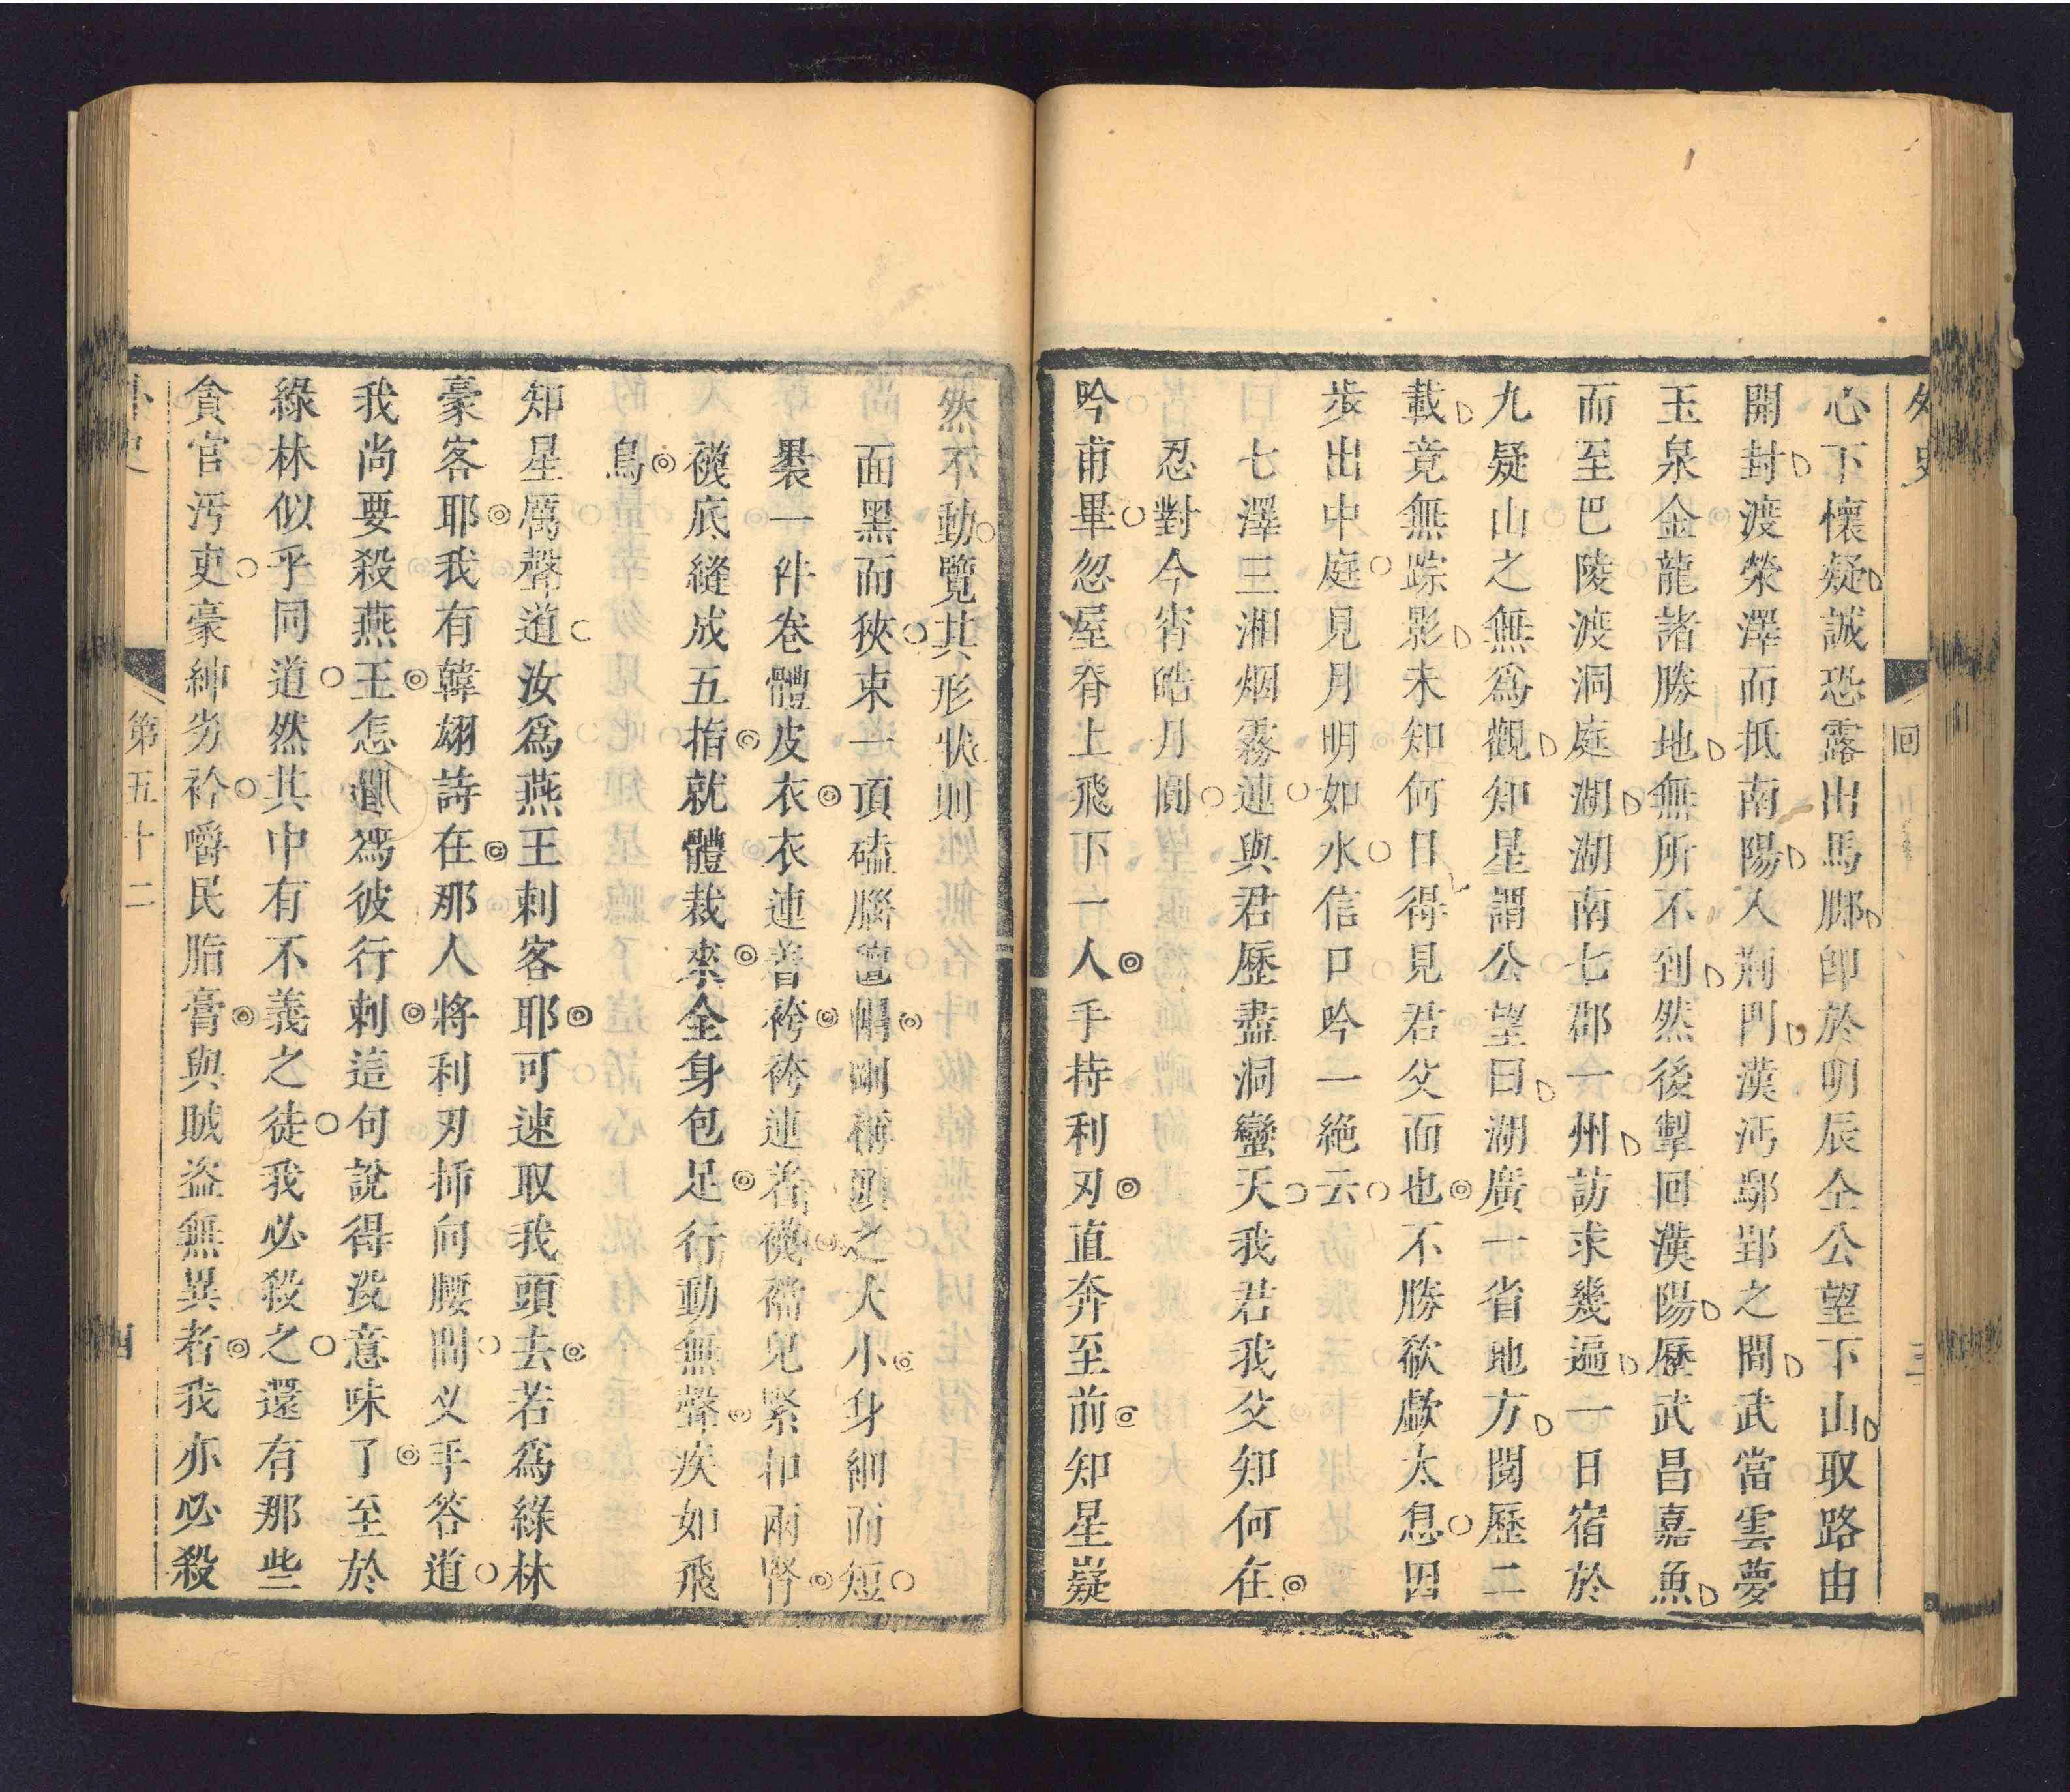 外史
回
三
心下懷疑誠恐露出馬脚卽於明辰仝公望下山取路由
開封渡滎澤而抵南陽入荊門漢沔鄢郢之間武當雲夢
玉泉金龍諸勝地無所不到然後掣回漢陽歷武昌嘉魚
而至巴陵渡洞庭湖湖南七郡一州訪求幾遍一日宿於
九疑山之無爲觀知星謂公望曰湖廣一省地方閱歷二
載竟無踪影未知何日得見君父面也不勝欷歔太息因
步出中庭見月明如水信口吟一絶云
七澤三湘烟霧連與君歷盡洞蠻天我君我父知何在
忍對今宵皓月圓
吟甫畢忽屋脊上飛下一人手持利刃直奔至前知星嶷
然不動覽其形狀則
面黑而狹束一頂磕腦氊帽剛稱頭之大小身細而短
褁一件卷體皮衣衣連着袴袴連着襪襠兒緊扣兩臀
襪底縫成五指就體裁來全身包足行動無聲疾如飛
鳥
知星厲聲道汝爲燕王刺客耶可速取我頭去若爲綠林
豪客耶我有韓翃詩在那人將利刃揷向腰間义手答道
我尚要殺燕王怎肎爲彼行刺這句說得没意味了至於
綠林似乎同道然其中有不義之徒我必殺之還有那些
貪官汚吏豪紳劣衿嚼民脂膏與賊盜無異者我亦必殺
外史
第五十二
四